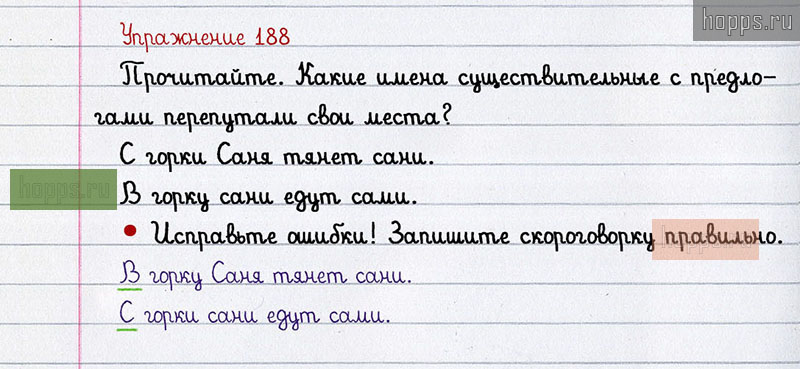 hopps.ru
Упражнение 188
Прочитайте. Какие имена существительные с предло-
гами перепутали свои места?
С горки Саня тянет сани.
hopps.ru
В горку сани едут сами.
• Исправьте ошибки! Запишите скороговорку правильно.
В горку Саня тянет сани.
С горки сани едут сами.